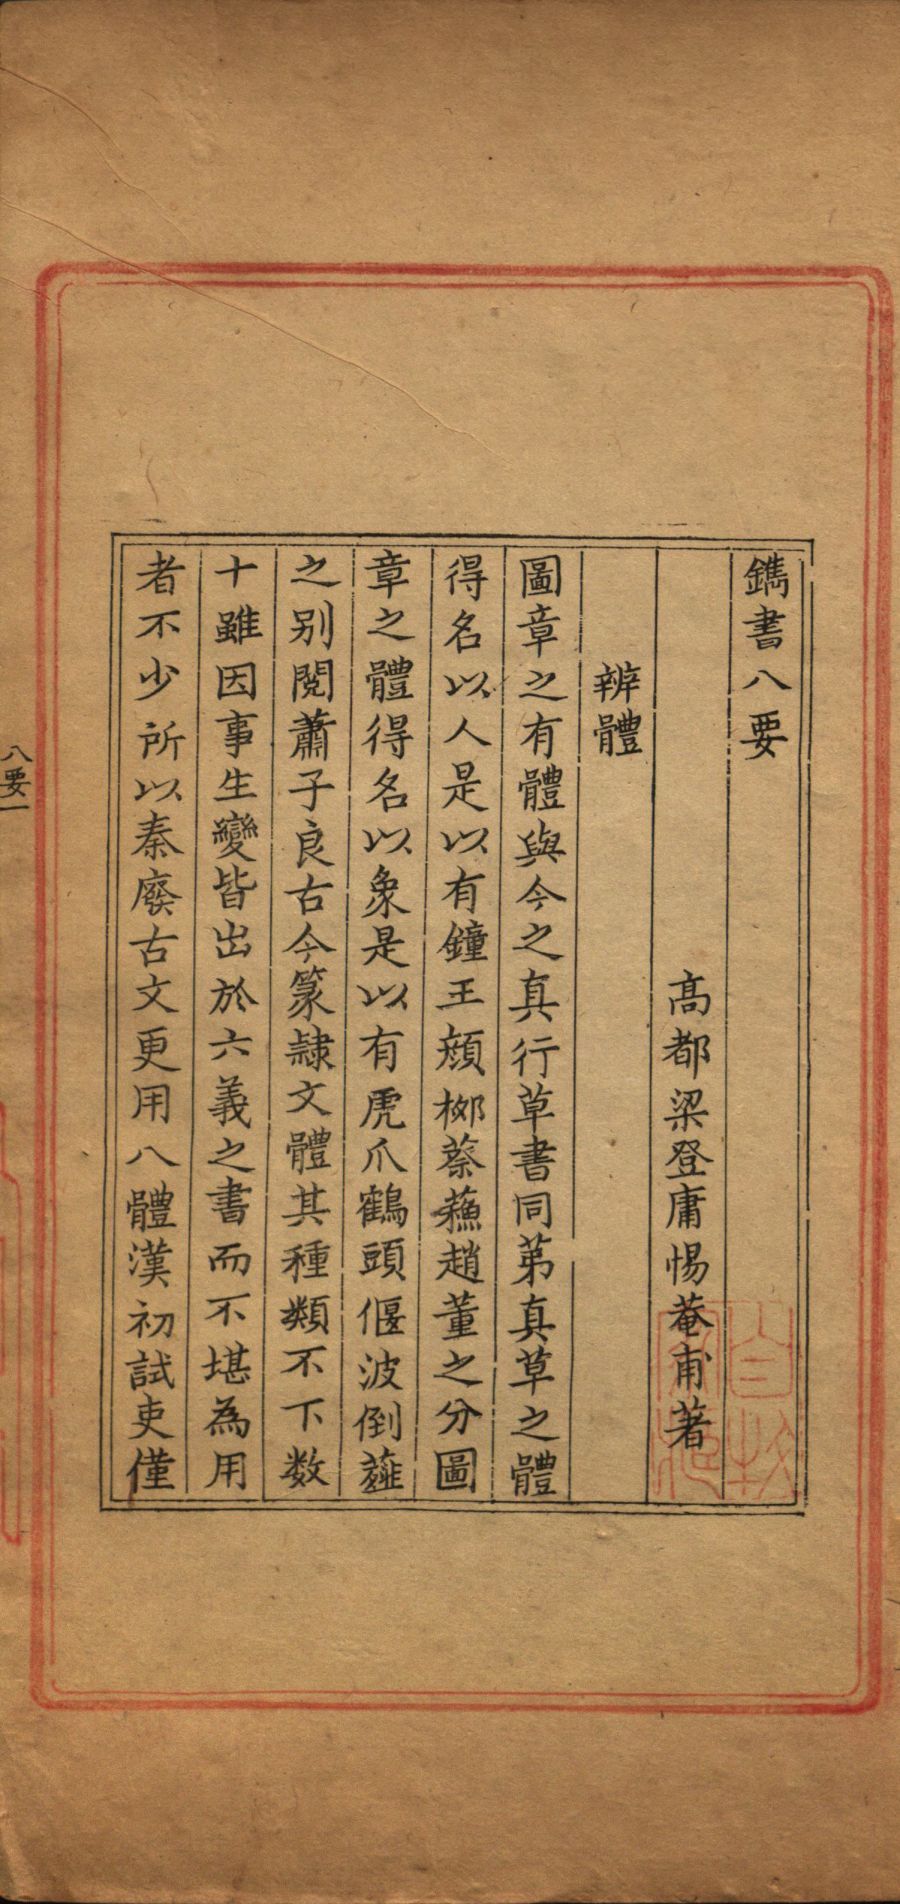 鐫書八要
高都梁登庸惕菴甫著
辨體
圖章之有體與今之真行草書同苐真草之體
得名以人是以有鐘王顔栁蔡蘓趙董之分圖
章之體得名以象是以有虎爪鶴頭偃波倒薤
之别閱蕭子良古今篆隷文體其種類不下数
十雖因事生變皆出於六義之書而不堪為用
者不少所以秦廢古文更用八體漢初試吏僅
八要一